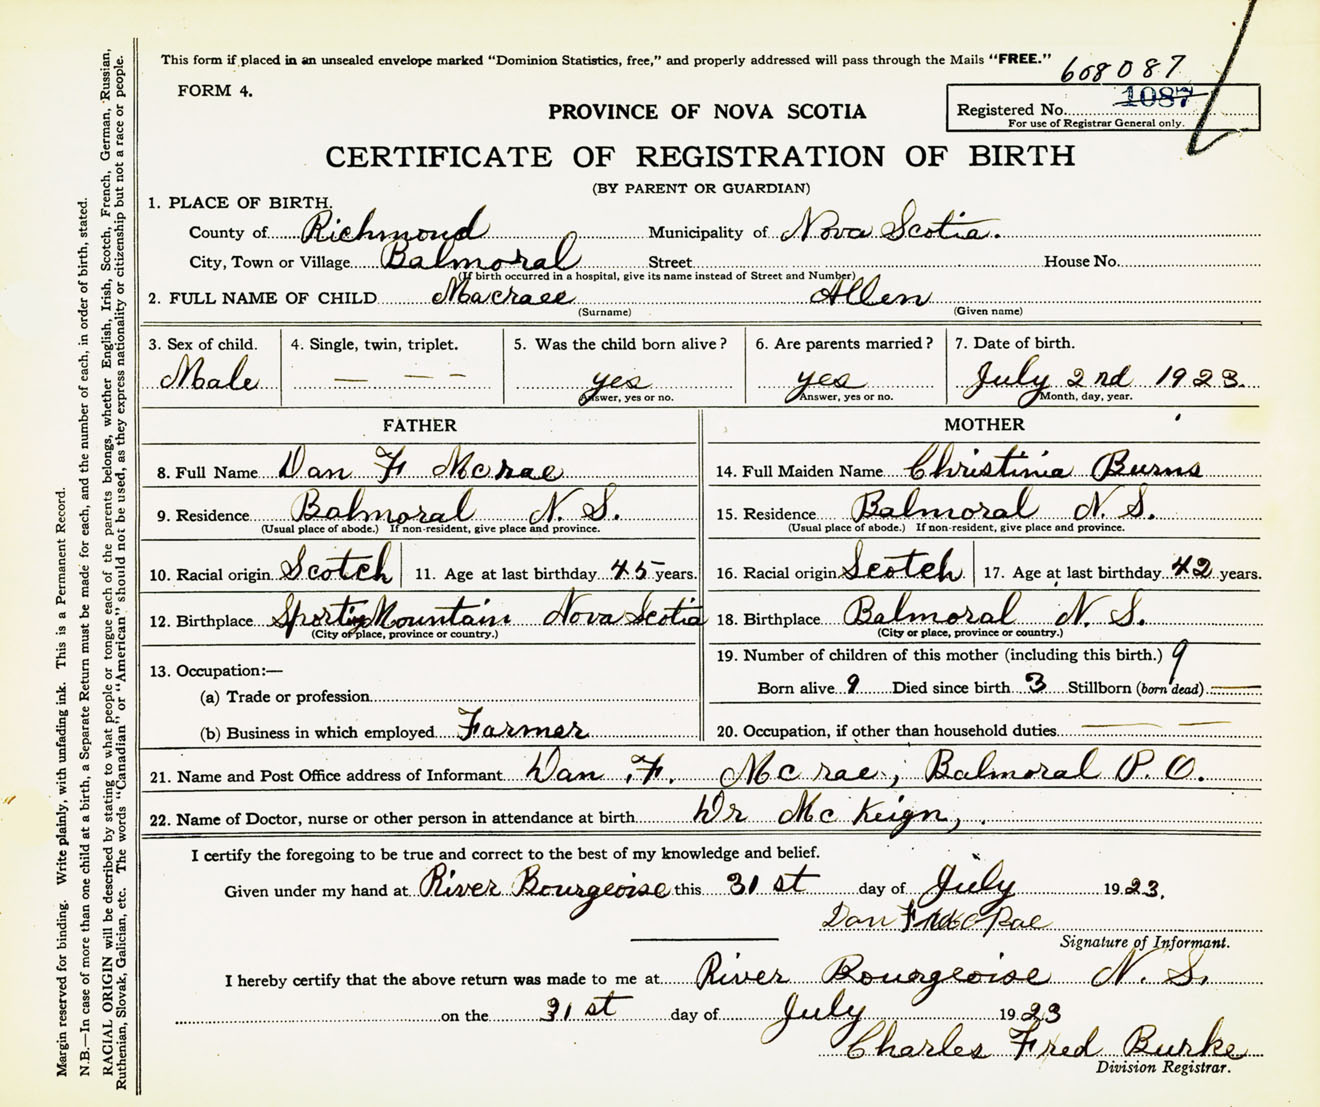 This form if placed in an unsealed envelope marked "Dominion Statistics, free," and properly addressed will pass through the Mails "FREE."
608087
FORM 4.
1087
Registered No.
For use of Registrar General only.
PROVINCE OF NOVA SCOTIA
CERTIFICATE OF REGISTRATION OF BIRTH
(BY PARENT OR GUARDIAN)
1. PLACE OF BIRTH.
County of Richmond Municipality of Nova Scotia.
City, Town or Village Balmoral Street House No.
(If birth occurred in a hospital, give its name instead of Street and Number)
2. FULL NAME OF CHILD Macraee Allen
(Surname) (Given name)
3. Sex of child. 4. Single, twin, triplet. 5. Was the child born alive? 6. Are parents married? 7. Date of birth.
Male — — — yes yes July 2nd 1923.
Answer, yes or no. Answer, yes or no. Month, day, year.
FATHER MOTHER
8. Full Name Dan F Mcrae 14. Full Maiden Name Christinia Burns
9. Residence Balmoral N. S. 15. Residence Balmoral N. S.
(Usual place of abode.) If non-resident, give place and province. (Usual place of abode.) If non-resident, give place and province.
10. Racial origin Scotch 11. Age at last birthday 45 years. 16. Racial origin Scotch 17. Age at last birthday 42 years.
12. Birthplace Sporting Mountain Nova Scotia 18. Birthplace Balmoral N. S.
(City or place, province or country.) (City or place, province or country.)
13. Occupation:— 19. Number of children of this mother (including this birth.) 9
(a) Trade or profession Born alive 9 Died since birth 3 Stillborn (born dead) —
(b) Business in which employed Farmer 20. Occupation, if other than household duties — —
21. Name and Post Office address of Informant Dan F. Mc rae, Balmoral P. O.
22. Name of Doctor, nurse or other person in attendance at birth Dr Mc Keign,
I certify the foregoing to be true and correct to the best of my knowledge and belief.
Given under my hand at River Bourgeoise this 31 st day of July 1923.
Dan F McRae
Signature of Informant.
I hereby certify that the above return was made to me at River Bourgeoise N. S.
on the 31 st day of July 1923
Charles Fred Burke
Division Registrar.
Margin reserved for binding. Write plainly, with unfading ink. This is a Permanent Record.
N.B.—In case of more than one child at a birth, a Separate Return must be made for each, and the number of each, in order of birth, stated.
RACIAL ORIGIN will be described by stating to what people or tongue each of the parents belongs, whether English, Irish, Scotch, French, German, Russian,
Ruthenian, Slovak, Galician, etc. The words "Canadian" or "American" should not be used, as they express nationality or citizenship but not a race or people.